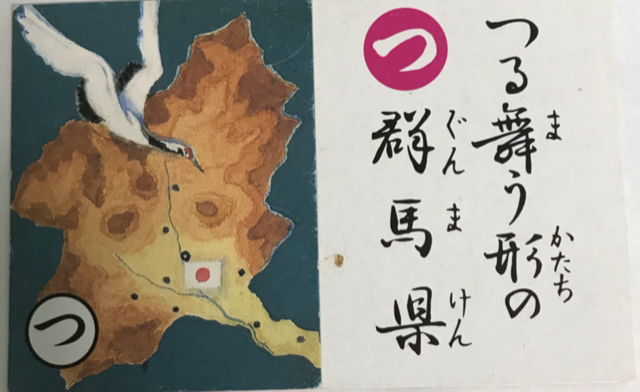 つ
つる舞う形の
ま
かたち
群馬県
ぐんまけん
つ